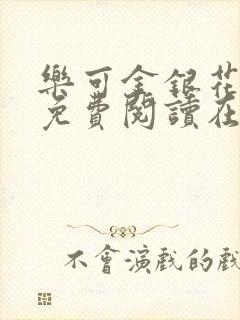 樂可金銀花
免費閱讀在
不會演戲的戲